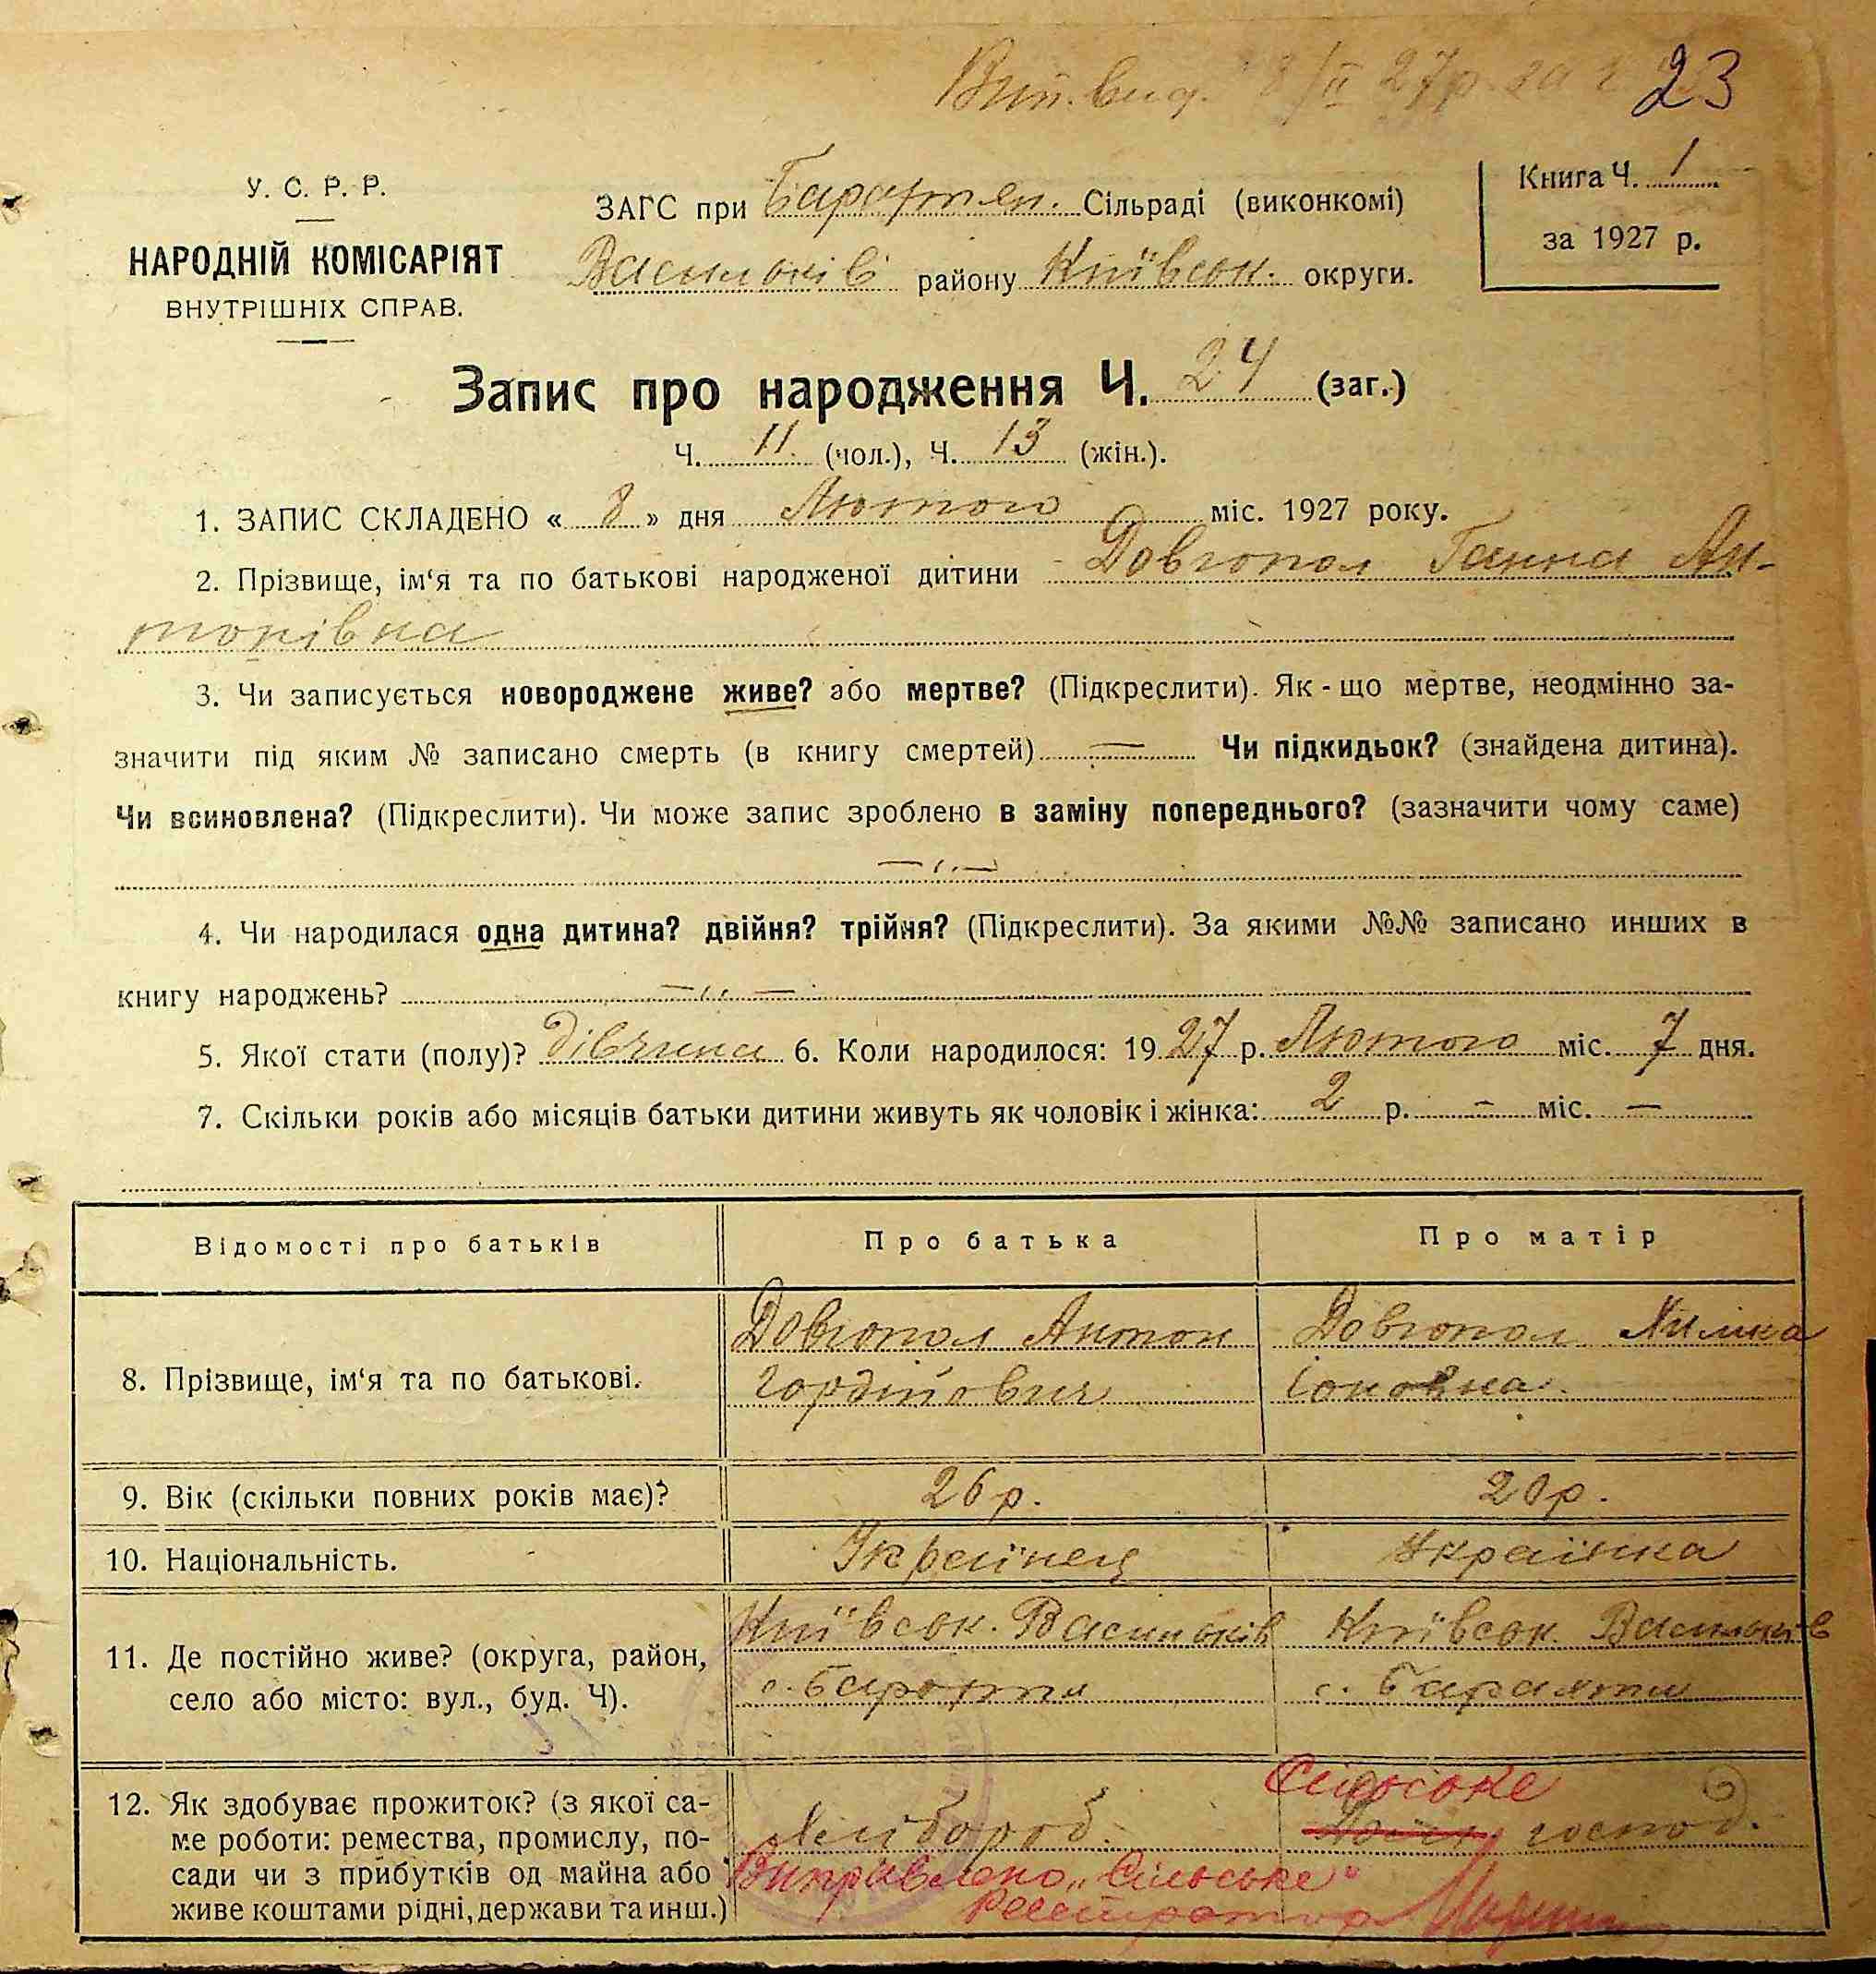 Вип. вид. 8/II 27р. за 23
У. С. Р. Р.
НАРОДНІЙ КОМІСАРІЯТ
ВНУТРІШНІХ СПРАВ.
ЗАГС при Барахтян. Сільраді (виконкомі)
Васильків району Київськ. округи.
Книга Ч. 1
за 1927 р.
Запис про народження Ч. 24 (заг.)
Ч. 11 (чол.), Ч. 13 (жін.).
1. ЗАПИС СКЛАДЕНО « 8 » дня Лютого міс. 1927 року.
2. Прізвище, ім‘я та по батькові народженої дитини Довгопол Ганна Ан-
тонівна
3. Чи записується новороджене живе? або мертве? (Підкреслити). Як-що мертве, неодмінно за-
значити під яким № записано смерть (в книгу смертей) — Чи підкидьок? (знайдена дитина).
Чи всиновлена? (Підкреслити). Чи може запис зроблено в заміну попереднього? (зазначити чому саме)
— „ —
4. Чи народилася одна дитина? двійня? трійня? (Підкреслити). За якими №№ записано инших в
книгу народжень? — „ —
5. Якої стати (полу)? дівчина 6. Коли народилося: 1927 р. Лютого міс. 7 дня.
7. Скільки років або місяців батьки дитини живуть як чоловік і жінка: 2 р. — міс. —
Відомості про батьків Про батька Про матір
8. Прізвище, ім‘я та по батькові.
Довгопол Антон
Гордійович
Довгопол
Іоновна
9. Вік (скільки повних років має)? 26 р. 20 р.
10. Національність. Українец Українка
11. Де постійно живе? (округа, район,
село або місто: вул., буд. Ч).
Київськ. Васильків
с. Барахтя
Київськ. Васильків
с. Барахти
12. Як здобуває прожиток? (з якої са-
ме роботи: ремества, промислу, по-
сади чи з прибутків од майна або
живе коштами рідні, держави та инш.)
Хлібороб.
Сільське
господ.
Виправлено „Сільське"
Реєстратор